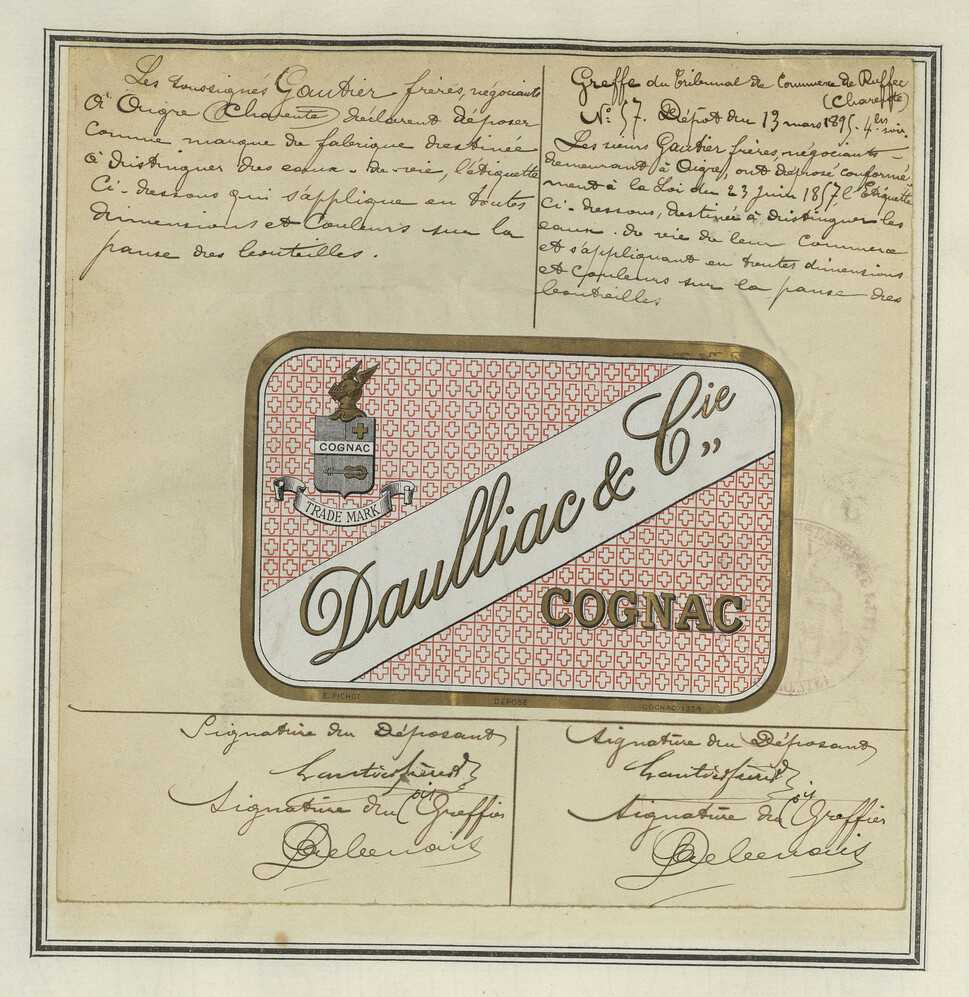 Les soussignés Gautier frères, négociants
à Aigre (Charente) déclarent déposer
comme marque de fabrique destinée
à distinguer des eaux-de-vie, l'étiquette
Ci-dessous qui s'applique en toutes
dimensions et Couleurs sur la
panse des bouteilles.
Greffe du Tribunal de Commerce de Ruffec
(Charente)
N° 57. Dépôt du 13 mars 1895. 4 hrs soir.
Les sieurs Gautier frères, négociants
demeurant à Aigre, ont déposé conformé-
ment à la Loi du 23 Juin 1857 l'Etiquette
Ci-dessous, destinée à distinguer les
eaux-de-vie de leur Commerce
et s'appliquant en toutes dimensions
et Couleurs sur la panse des
bouteilles
COGNAC
TRADE MARK
Daulliac & Cie
COGNAC
E. PICHOT
DÉPOSÉ
COGNAC 1334
Signature du Déposant
Gautier frères
Signature du Cis Greffier
Signature du Déposant
Gautier frères
Signature du Cis Greffier